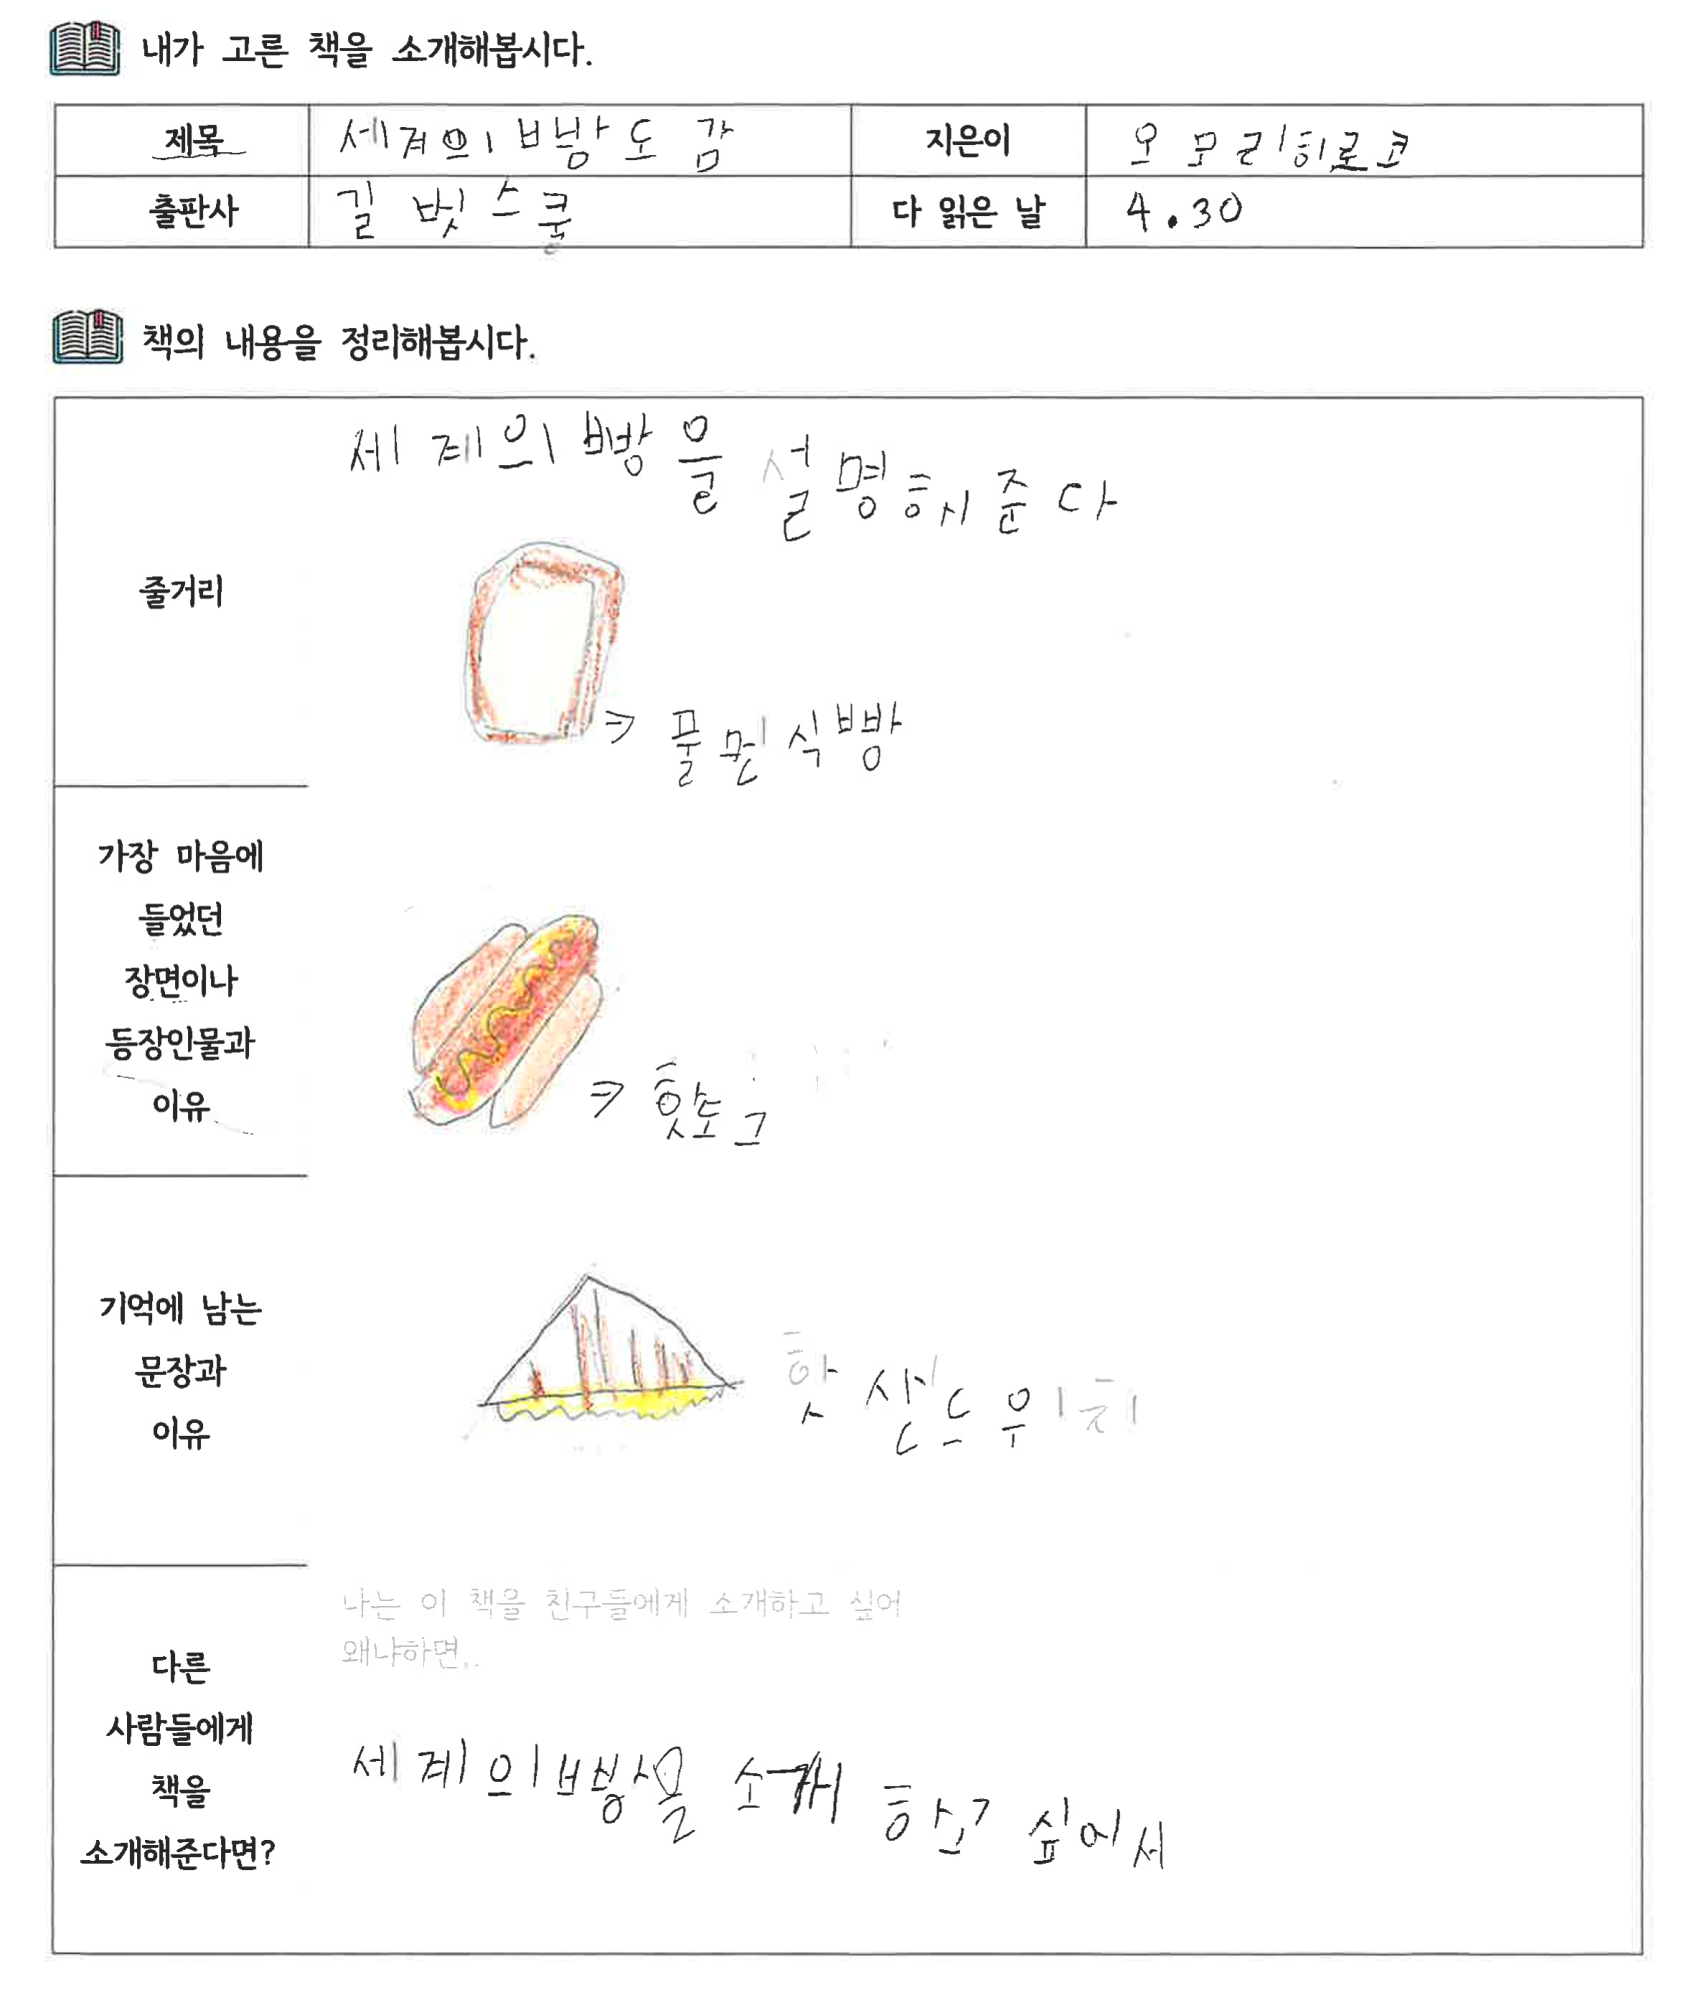 내가 고른 책을 소개해봅시다.
제목 세계의 빵 도감 지은이 오모리히로코
출판사 길벗스쿨 다 읽은 날 4.30
책의 내용을 정리해봅시다.
세계의 빵을 설명해준다
줄거리
식빵
가장 마음에
들었던
장면이나
등장인물과
이유
핫도그
기억에 남는
문장과
이유
핫 샌드위치
나는 이 책을 친구들에게 소개하고 싶어
왜냐하면..
다른
사람들에게
책을
소개해준다면?
세계의 빵을 소개 하고 싶어서